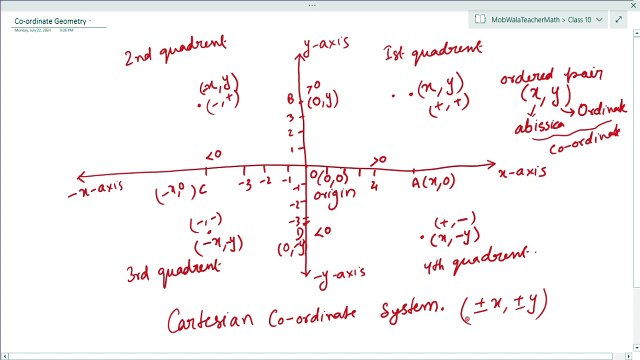 Co-ordinate Geometry
Monday, July 22, 2024 9:26 PM
MobWalaTeacherMath > Class 10
2nd quadrent
y-axis
Ist quadrent
(-x, y)
(-, +)
>0
B (0, y)
(x, y)
(+, +)
ordered pair
(x, y)
Ordinate
abissica
co-ordinate
3
2
1
<0
>0
-x-axis
(-x, 0) C
-3 -2 -1
0 (0, 0)
origin
4
A (x, 0)
x-axis
-1
-2
-3
D
(0, -y)
<0
(-, -)
(-x, -y)
(+, -)
(x, -y)
3rd quadrent
4th quadrent.
-y-axis
Cartesian Co-ordinate System. (±x, ±y)